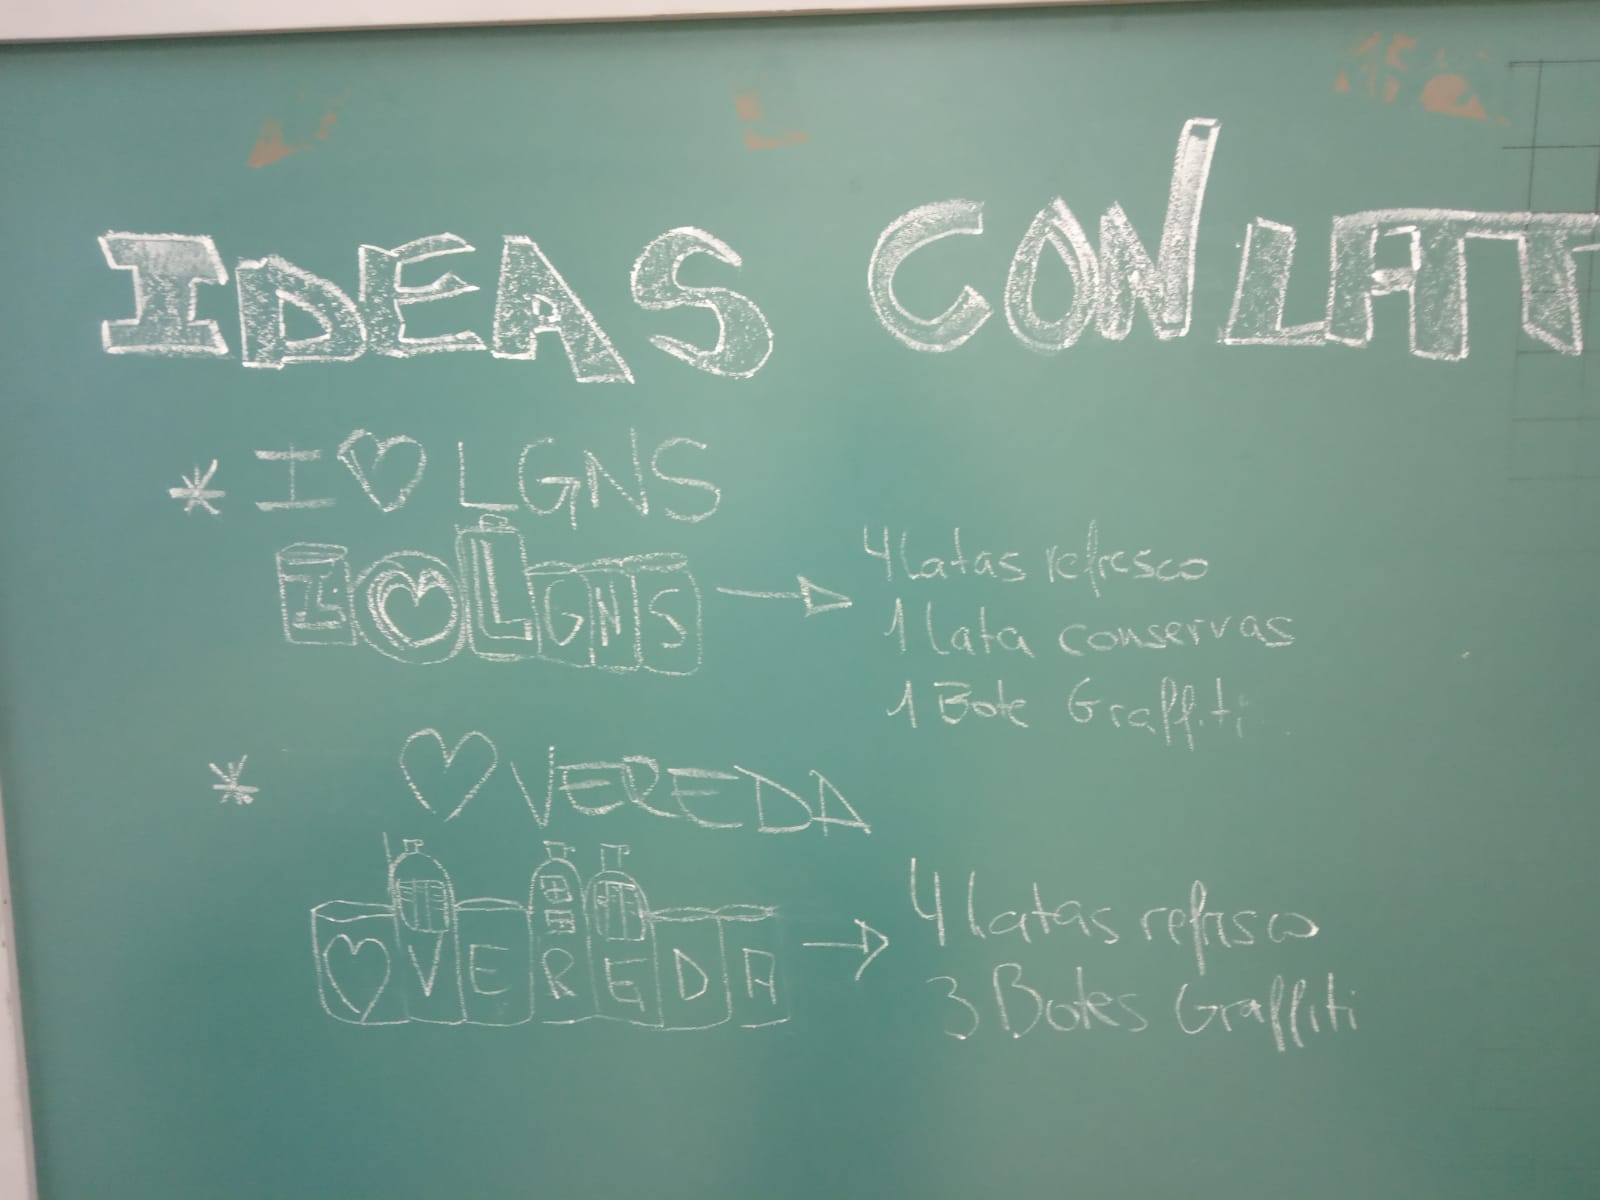 IDEAS CON LAT
* I ♡ LGNS
I ♡ L G N S → 4 Latas refresco
1 Lata conservas
1 Bote Graffiti
* ♡ VEREDA
♡ V E R E D A → 4 Latas refrsco
3 Botes Graffiti